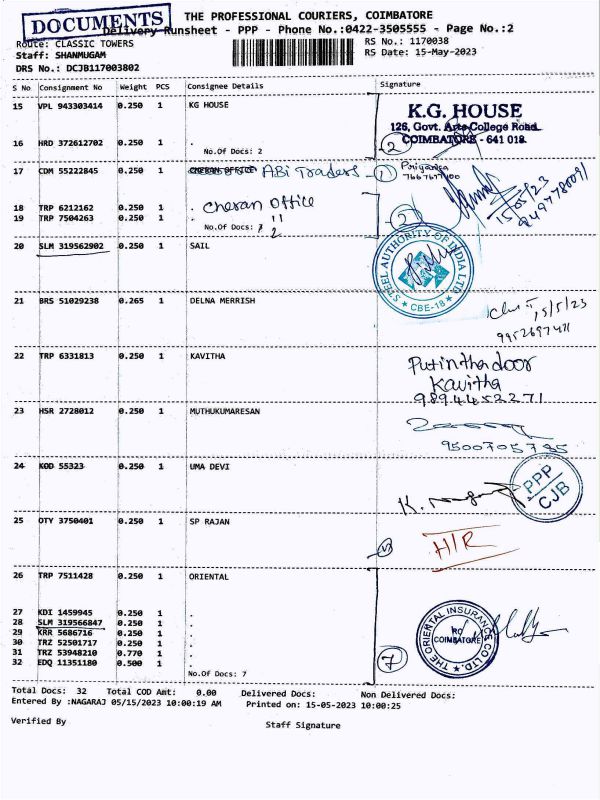 DOCUMENTS
THE PROFESSIONAL COURIERS, COIMBATORE
Delivery Runsheet - PPP - Phone No.:0422-3505555 - Page No.:2
Route: CLASSIC TOWERS
RS No.: 1170038
Staff: SHANMUGAM
RS Date: 15-May-2023
DRS No.: DCJB117003802
S No Consignment No Weight PCS Consignee Details Signature
15 VPL 943303414 0.250 1 KG HOUSE
K.G. HOUSE
126, Govt. Arts College Road
COIMBATORE - 641 018.
16 HRD 372612702 0.250 1 .
No.Of Docs: 2
2
17 CDM 55222845 0.250 1 CHERAN OFFICE ABi Traders 1
Priyanka
18 TRP 6212162 0.250 1 . Cheran Office
19 TRP 7504263 0.250 1 . 11
No.Of Docs: 2
2
15/05/23
20 SLM 319562902 0.250 1 SAIL
STEEL AUTHORITY OF INDIA LTD.
CBE-18
21 BRS 51029238 0.265 1 DELNA MERRISH
15/5/23
22 TRP 6331813 0.250 1 KAVITHA
Put in the door
Kavitha
9894452271
23 HSR 2728012 0.250 1 MUTHUKUMARESAN
9500705785
24 KOD 55323 0.250 1 UMA DEVI
PPP
CJB
25 OTY 3750401 0.250 1 SP RAJAN
H/R
26 TRP 7511428 0.250 1 ORIENTAL
27 KDI 1459945 0.250 1 .
28 SLM 319566847 0.250 1 .
29 KRR 5686716 0.250 1 .
30 TRZ 52501717 0.250 1 .
31 TRZ 53948210 0.770 1 .
32 EDQ 11351180 0.500 1 .
No.Of Docs: 7
7
THE ORIENTAL INSURANCE CO.LTD.
RO
COIMBATORE
Total Docs: 32 Total COD Amt: 0.00 Delivered Docs: Non Delivered Docs:
Entered By :NAGARAJ 05/15/2023 10:00:19 AM Printed on: 15-05-2023 10:00:25
Verified By
Staff Signature